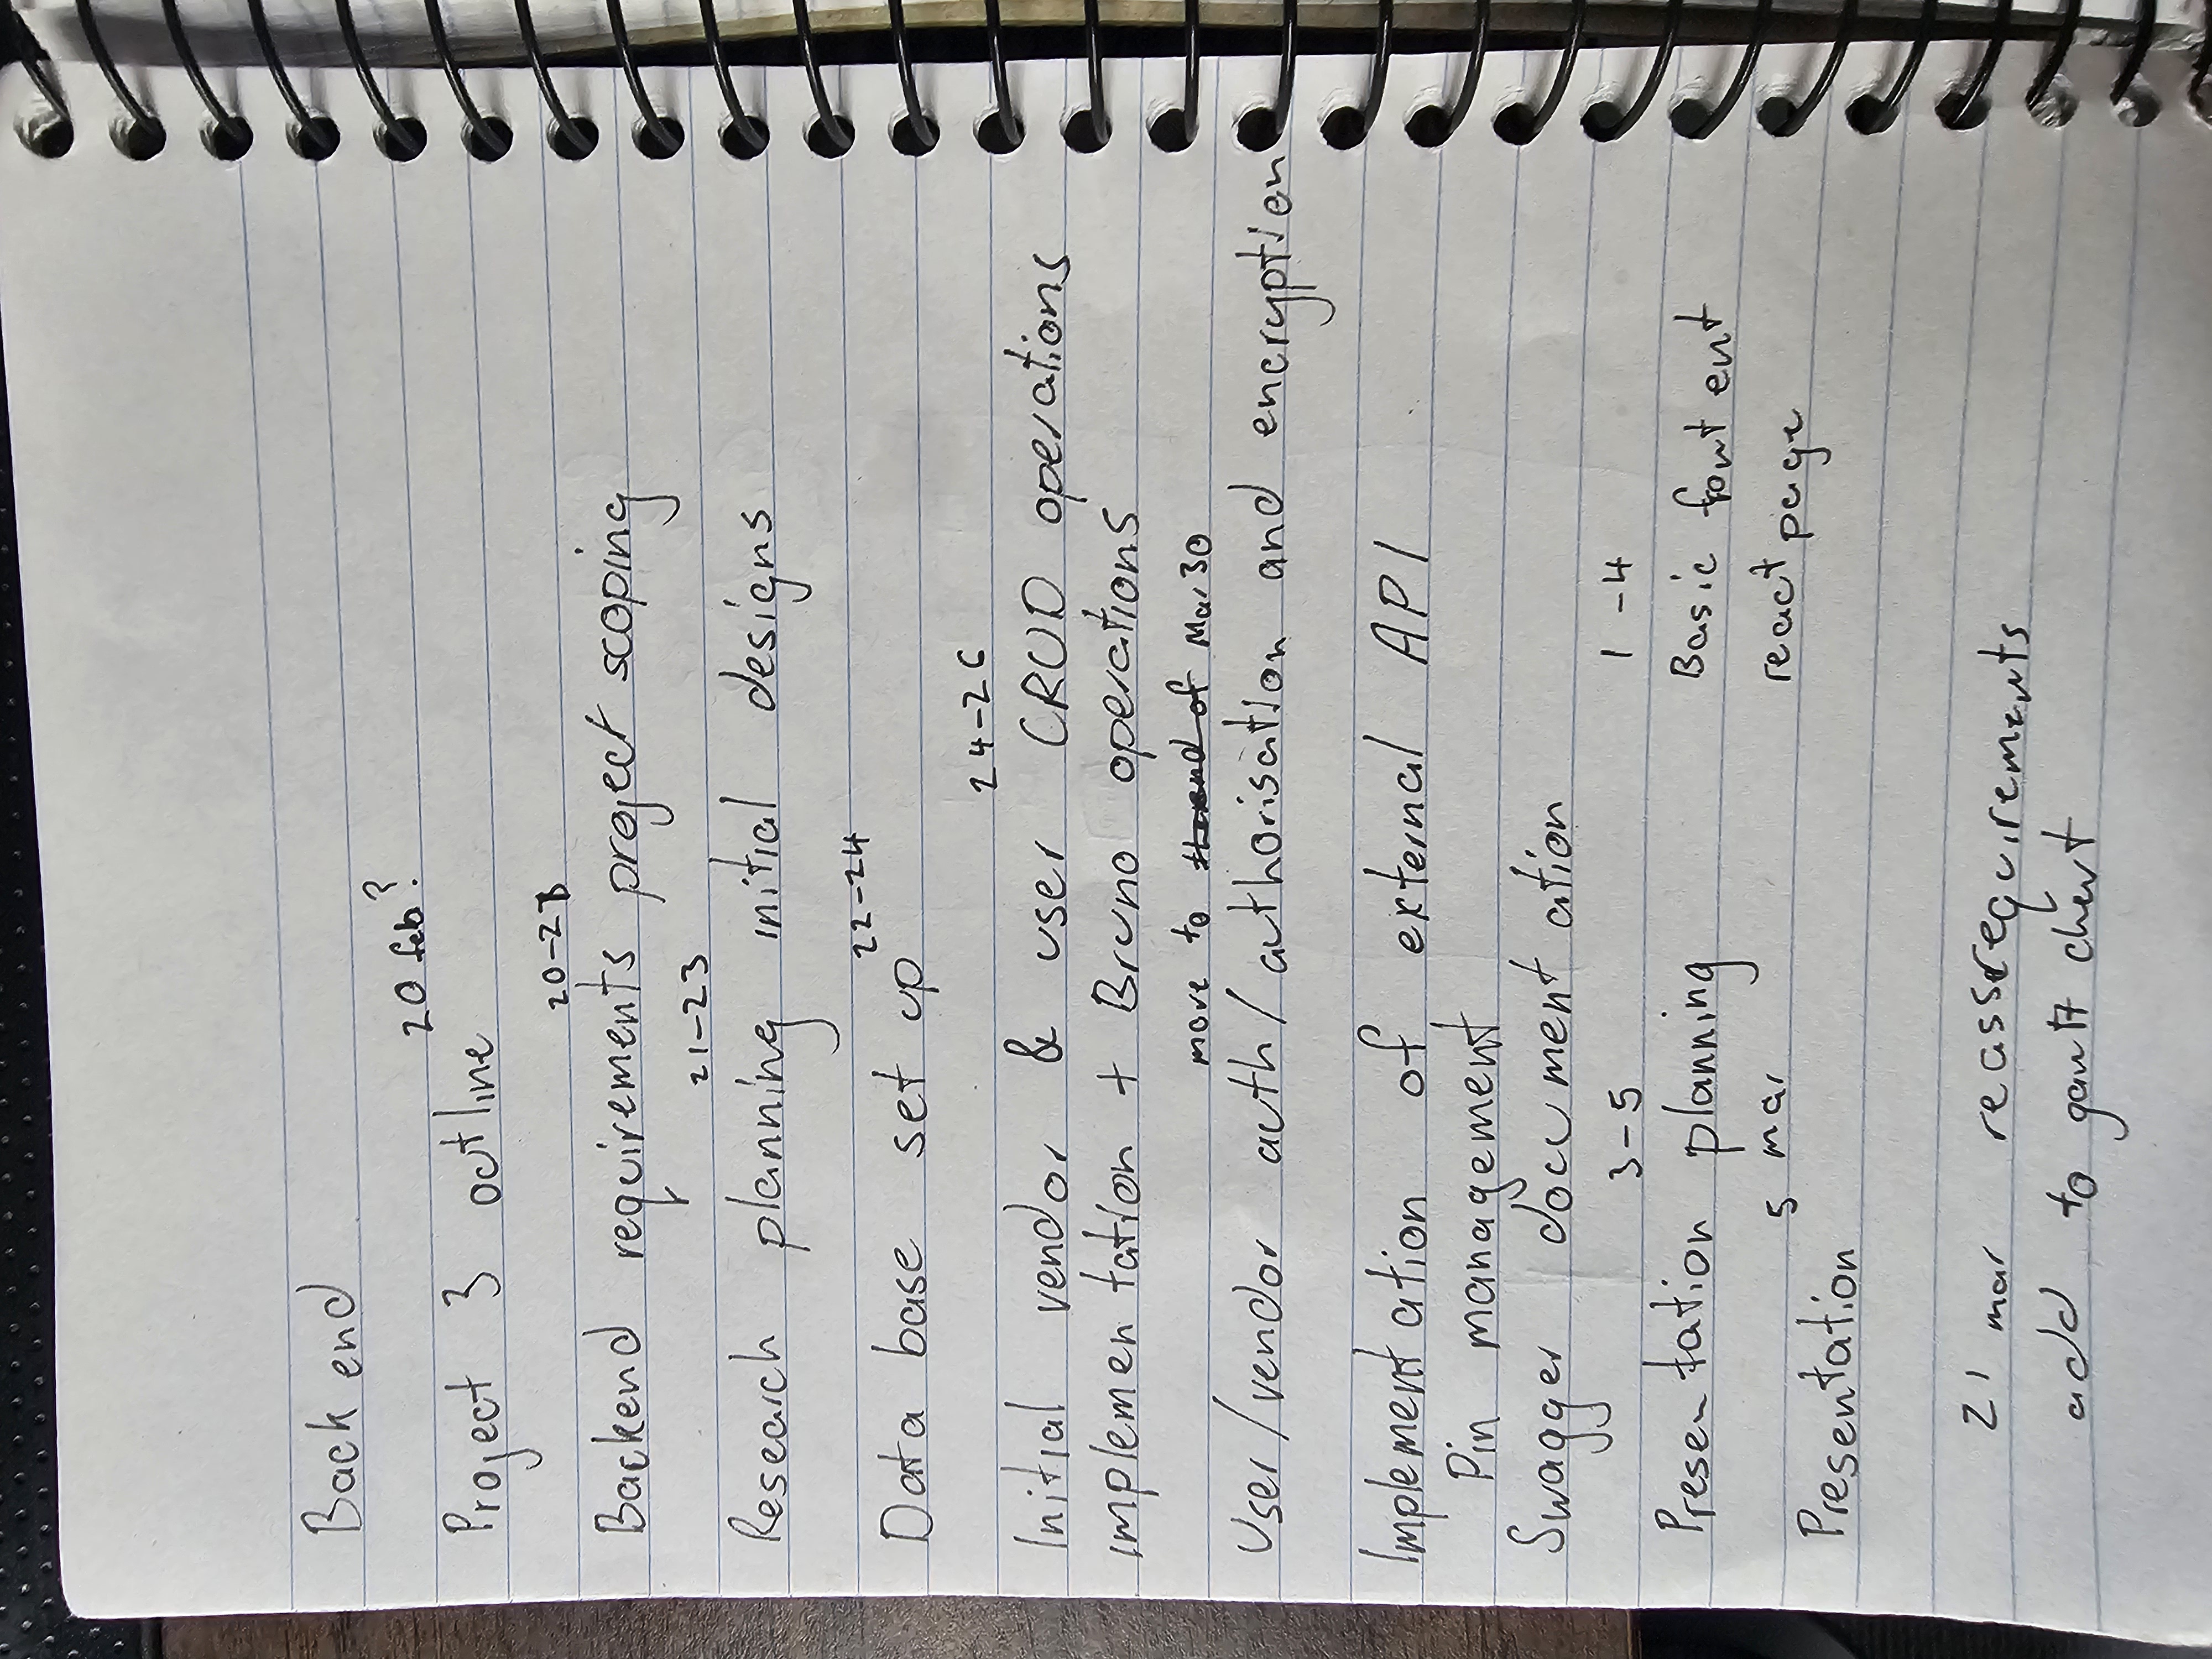 Back end
20 feb?
Project 3 outline
20-23
Backend requirements project scoping
21-23
Research planning initial designs
22-24
Data base set up
24-26
Initial vendor & user CRUD operations
implementation + Bruno operations
move to the end of Mar 30
User/vendor auth/authorisation and encryption
Implementation of external API
Pin management
Swagger documentation
3-5 1-4
Presentation planning Basic font ent
5 mar react page
Presentation
21 mar requirements
add to gantt chart